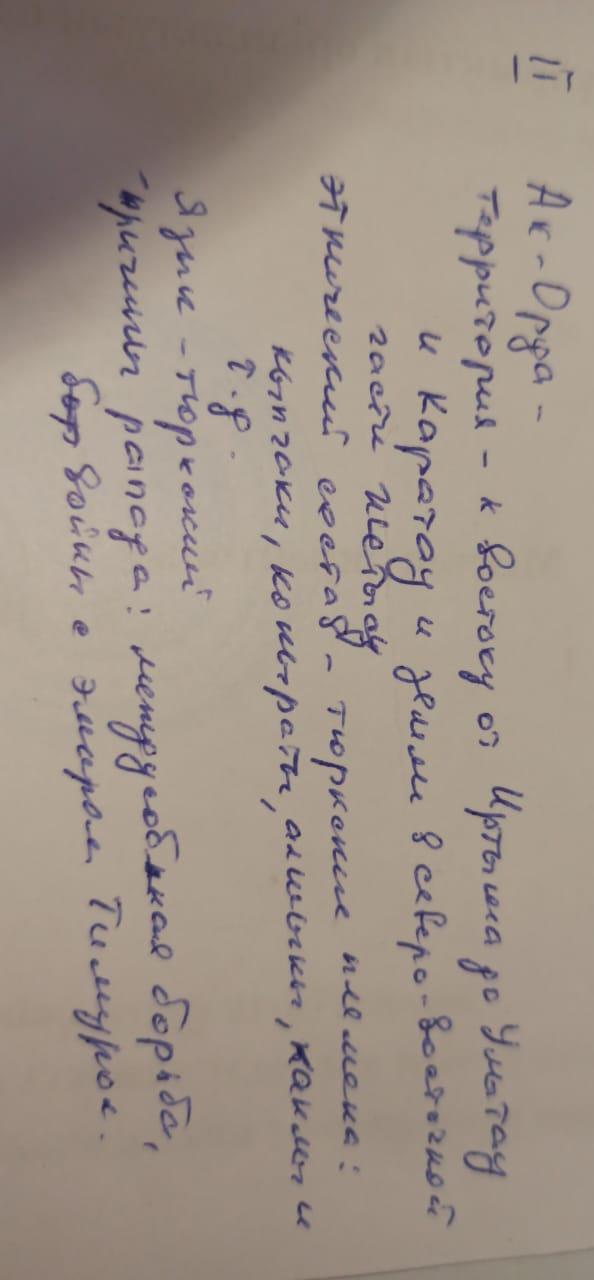 II
Ак-Орда -
Территория - к востоку от Иртыша до Улытау
и Каратау и земли в северо-восточной
части
этнический состав - тюркские племена:
кыпчаки, коныраты, алшыны, канглы и
т.д.
Язык - тюркский
- причины распада: междусобная борьба,
войны с эмиром Тимуром.